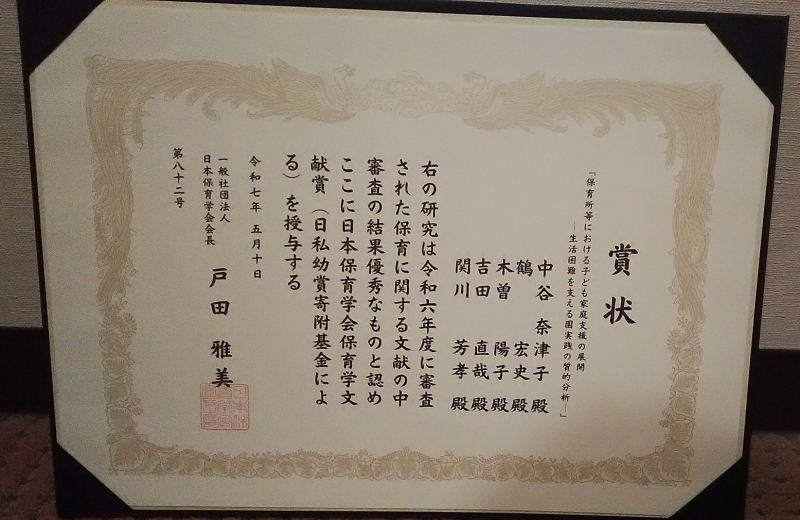 賞状
「保育所等における子ども家庭支援の展開
―生活困難を支える園実践の質的分析―」
中谷 奈津子 殿
鶴 宏史 殿
木曽 陽子 殿
吉田 直哉 殿
関川 芳孝 殿
右の研究は令和六年度に審査
された保育に関する文献の中
審査の結果優秀なものと認め
ここに日本保育学会保育学文
献賞（日私幼賞寄附基金によ
る）を授与する
令和七年 五月十日
一般社団法人
日本保育学会会長
戸田 雅美
第八十二号